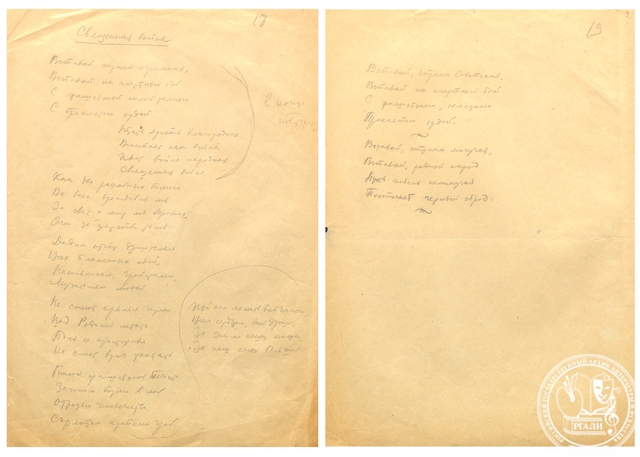 Священная война
Вставай, страна огромная,
Вставай на смертный бой
С фашистской силой темною
С проклятою ордой
Пусть ярость благородная
Вскипает как волна
Идет война народная
Священная война.
Как два различных полюса
Во всем враждебны мы
За свет и мир мы боремся
Они за царство тьмы
Дадим отпор душителям
Всех пламенных идей,
Насильникам, грабителям,
Мучителям людей
Не смеют крылья черные
Над Родиной летать
Поля ее просторные
Не смеет враг топтать
Гнилой фашистской нечисти
Загоним пулю в лоб
Отребью человечества
Сколотим крепкий гроб
В конце
Пойдем ломить всей силою
Всем сердцем, всей душой
За землю нашу милую
За наш союз большой
19
Вставай, страна советская.
Вставай на смертный бой
С фашистскою,
Проклятою ордой.
Вставай, страна могучая,
Вставай, родной народ
Пусть
черный сброд.
РГАЛИ